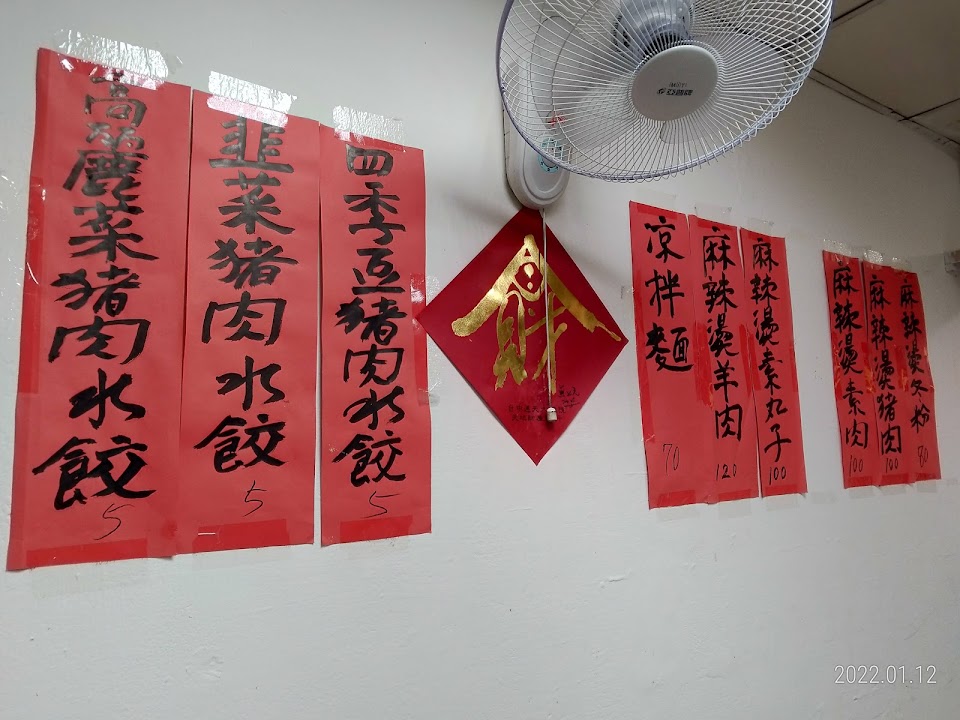 高麗菜豬肉水餃 5
韮菜猪肉水餃 5
四季豆猪肉水餃 5
凉拌麵 70
麻辣燙羊肉 120
麻辣燙素丸子 100
麻辣燙素肉 100
麻辣燙猪肉 100
麻辣燙冬粉 80
2022.01.12